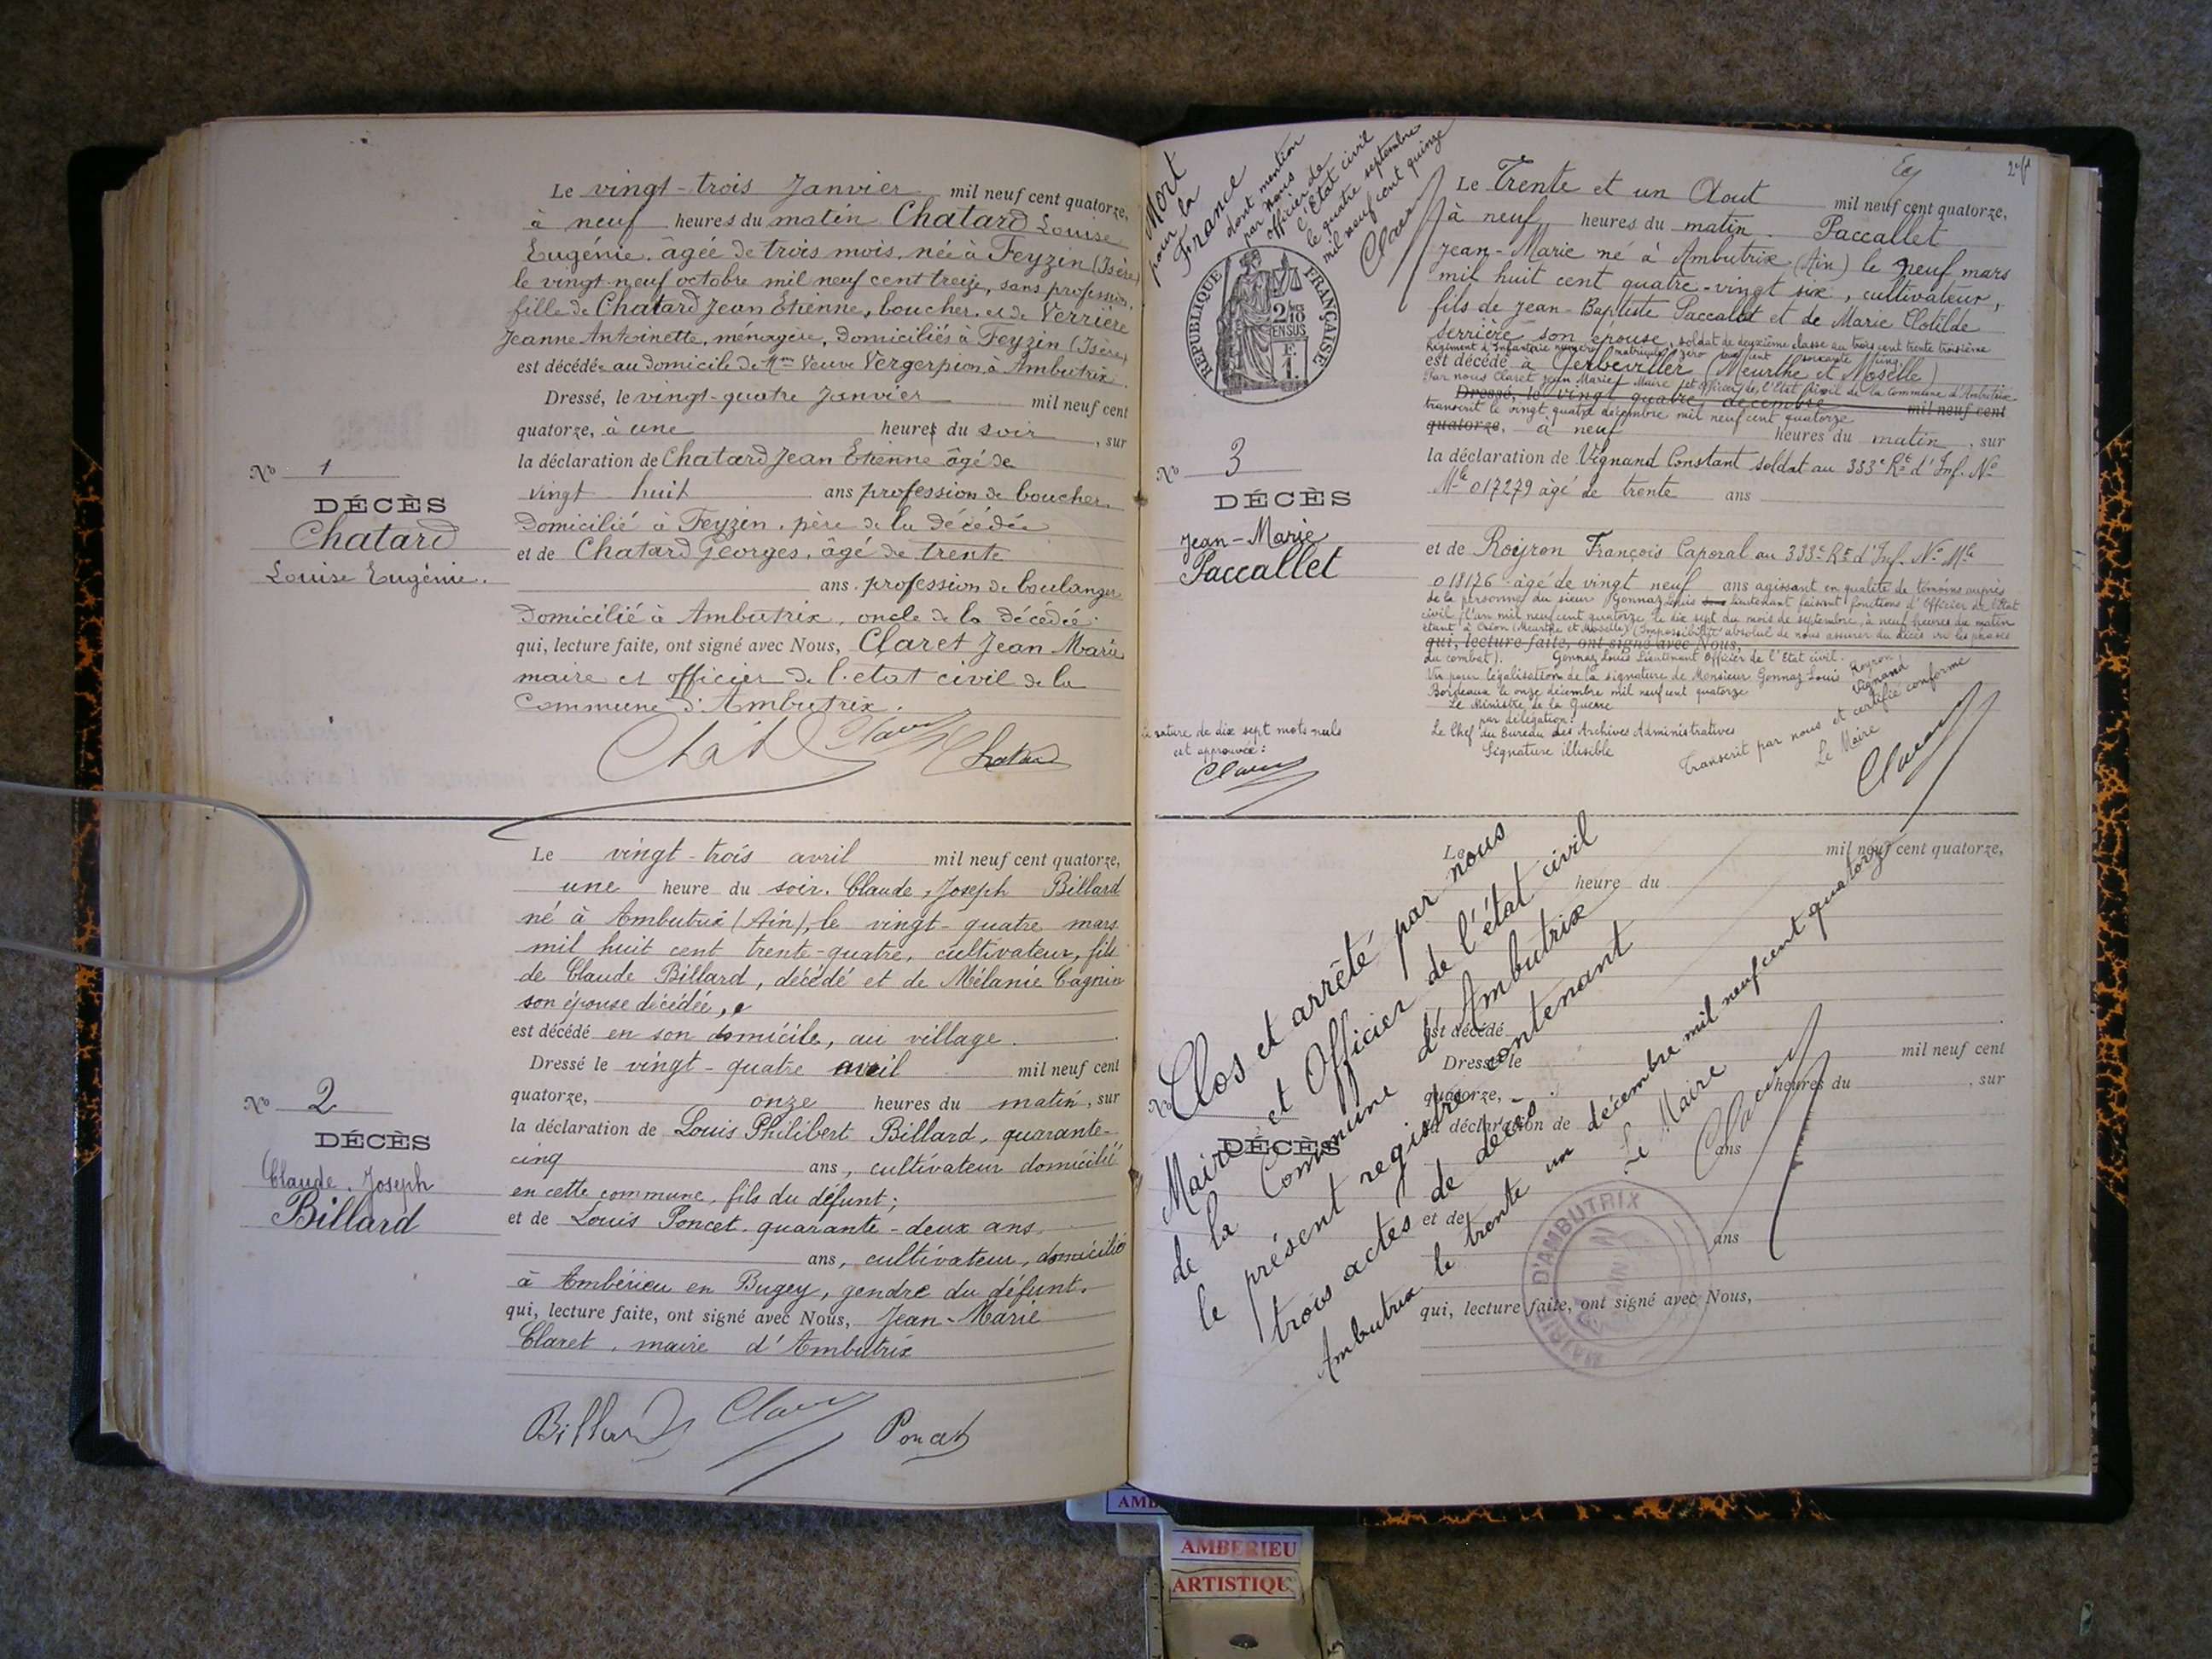 Le vingt-trois Janvier mil neuf cent quatorze,
à neuf heures du matin Chatard Louise
Eugénie, âgée de trois mois, née à Feyzin (Isère)
le vingt-neuf octobre mil neuf cent treize, sans profession,
fille de Chatard Jean Etienne, boucher, et de Verrière
Jeanne Antoinette, ménagère, domiciliés à Feyzin (Isère)
est décédée au domicile de Mme Veuve Vergerpion à Ambutrix.
Dressé, le vingt-quatre Janvier mil neuf cent
quatorze, à une heures du soir, sur
la déclaration de Chatard Jean Etienne âgé de
vingt huit ans profession de boucher,
domicilié à Feyzin, père de la décédée
et de Chatard Georges, âgé de trente
ans, profession de boulanger
domicilié à Ambutrix, oncle de la décédée.
qui, lecture faite, ont signé avec Nous, Claret Jean Marie
maire et officier de l'etat civil de la
Commune d'Ambutrix.
No 1
DÉCÈS
Chatard
Louise Eugénie.
Le vingt-trois avril mil neuf cent quatorze,
une heure du soir, Claude, Joseph Billard
né à Ambutrix (Ain), le vingt-quatre mars
mil huit cent trente-quatre, cultivateur, fils
de Claude Billard, décédé et de Mélanie Cagnin
son épouse décédée,
est décédé en son domicile, au village.
Dressé le vingt-quatre avril mil neuf cent
quatorze, onze heures du matin, sur
la déclaration de Louis Philibert Billard, quarante-
cinq ans, cultivateur domicilié
en cette commune, fils du défunt;
et de Louis Poncet quarante-deux ans
ans, cultivateur, domicilié
à Ambérieu en Bugey, gendre du défunt.
qui, lecture faite, ont signé avec Nous, Jean-Marie
Claret, maire d'Ambutrix
Billard Claret Poncet
No 2
DÉCÈS
Claude, Joseph
Billard
Mort
pour la
France
dont mention
par nous
officier de
l'état civil
le quatre septembre
mil neuf cent quinze
Claret
RÉPUBLIQUE FRANÇAISE
Le Trente et un Aout mil neuf cent quatorze,
à neuf heures du matin. Paccallet
Jean-Marie né à Ambutrix (Ain) le neuf mars
mil huit cent quatre-vingt six, cultivateur,
fils de Jean-Baptiste Paccallet et de Marie Clotilde
Serrière son épouse, soldat de deuxième classe au trois cent trente troisième
Régiment d'Infanterie numéro matricule zéro
est décédé à Gerbeviller (Meurthe et Moselle)
Par nous Claret Jean Marie, Maire et officier de l'Etat Civil de la Commune d'Ambutrix
Dressé, le vingt quatre décembre mil neuf cent
transcrit le vingt quatre décembre mil neuf cent quatorze
quatorze, à neuf heures du matin, sur
la déclaration de Vignand Constant soldat au 333e Rt d'Inf. No
Mle 017279 âgé de trente ans
et de Royron François Caporal au 333e Rt d'Inf. No Mle
018126 âgé de vingt neuf ans agissant en qualité de témoins auprès
de la personne du sieur Gonnaz Louis sous lieutenant faisant fonctions d'Officier de l'Etat
civil, l'an mil neuf cent quatorze, le dix sept du mois de septembre, à neuf heures du matin
étant à Crion (Meurthe et Moselle) (Impossibilité absolue de nous assurer du décès vu les phases
qui, lecture faite, ont signé avec Nous,
du combat). Gonnaz Louis Lieutenant Officier de l'Etat civil.
Vu pour légalisation de la signature de Monsieur Gonnaz Louis
Royron
Vignand
Bordeaux le onze décembre mil neuf cent quatorze
Le Ministre de la Guerre
par délégation:
Le Chef du Bureau des Archives Administratives
Signature illisible
Transcrit par nous et certifié conforme
Le Maire
Claret
No 3
DÉCÈS
Jean-Marie
Paccallet
rature de dix sept mots nuls
est approuvée:
Claret
Le mil neuf cent quatorze,
heure du
est décédé
Dressé le mil neuf cent
quatorze, heures du , sur
la déclaration de
ans
et de
ans
qui, lecture faite, ont signé avec Nous,
No
DÉCÈS
Clos et arrêté par nous
Maire et Officier de l'état civil
de la Commune d'Ambutrix
le présent registre contenant
trois actes de décès.
Ambutrix le trente un décembre mil neuf cent quatorze
Le Maire
Claret
MAIRIE D'AMBUTRIX
AIN
AMBERIEU
ARTISTIQU